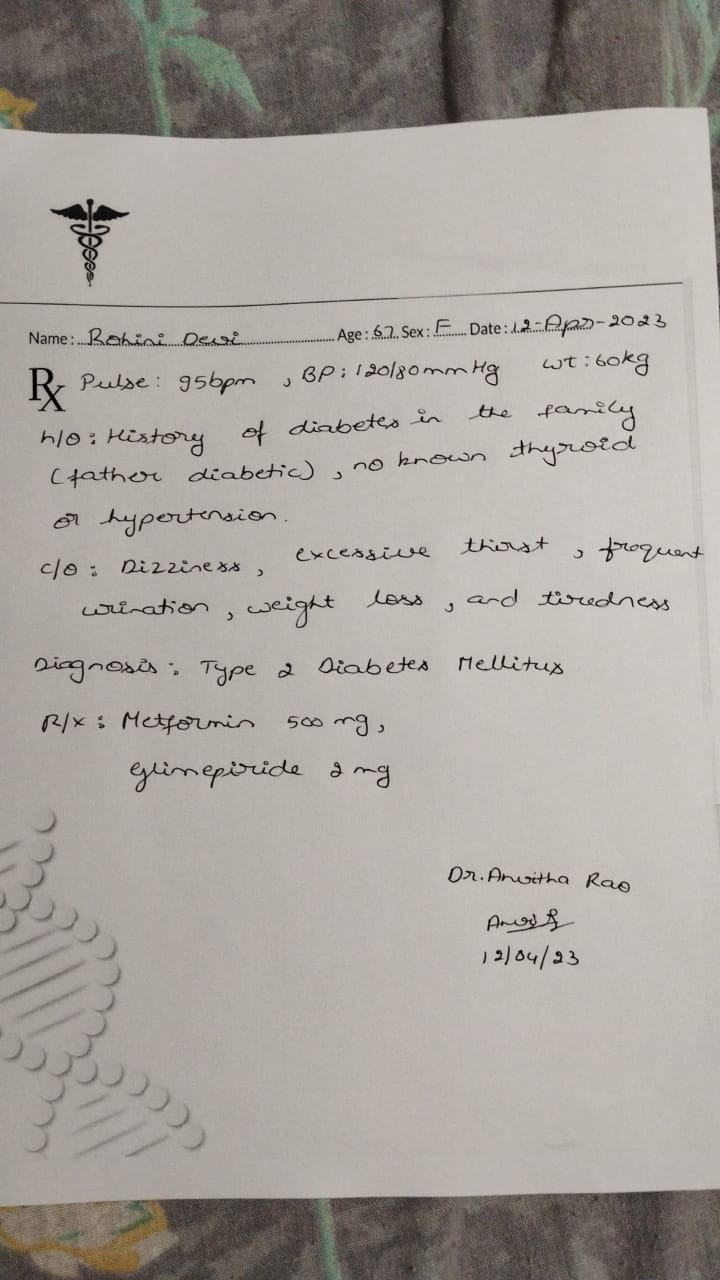 Name: Rohini Devi Age: 67 Sex: F Date: 12-Apr-2023
Rx Pulse: 95bpm, BP: 120/80mmHg wt: 60kg
h/o: History of diabetes in the family
(father diabetic), no known thyroid
or hypertension.
c/o: Dizziness, excessive thirst, frequent
urination, weight loss, and tiredness
Diagnosis: Type 2 Diabetes Mellitus
R/x: Metformin 500 mg,
Glimepiride 2 mg
Dr. Anvitha Rao
12/04/23